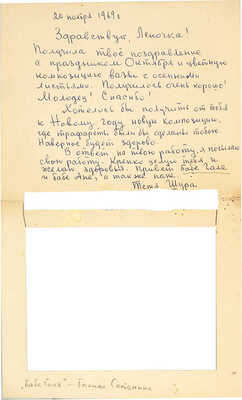 20 ноября 1969 г
Здравствуй, Леночка!
Получила твоё поздравление
с праздником Октября и цветную
композицию вазы с осенними
листьями. Получилось очень хорошо!
Молодец! Спасибо!
Хотелось бы получить от тебя
к Новому году новую композицию,
где трафареты были бы сделаны тобою.
Наверное будет здорово.
В ответ на твою работу, я посылаю
свою работу. Крепко целую тебя и
желаю здоровья. Привет бабе Гале
и бабе Ане, а также папе.
Тетя Шура
"Баба Галя" – Галина